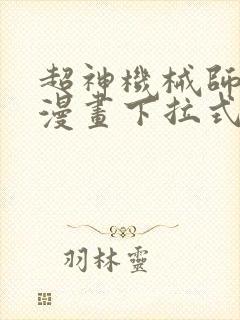 超神機械師
漫畫下拉式
羽林靈